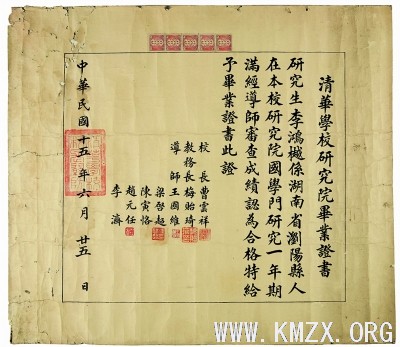 清華學校研究院畢業證書
研究生李鴻樾係湖南省瀏陽縣人
在本校研究院國學門研究一年期
滿經導師審查成績認為合格特給
予畢業證書此證
校長曹雲祥
教務長梅貽琦
導師王國維
梁啓超
陳寅恪
趙元任
李濟
中華民國十五年六月廿五日
WWW.KMZX.ORG